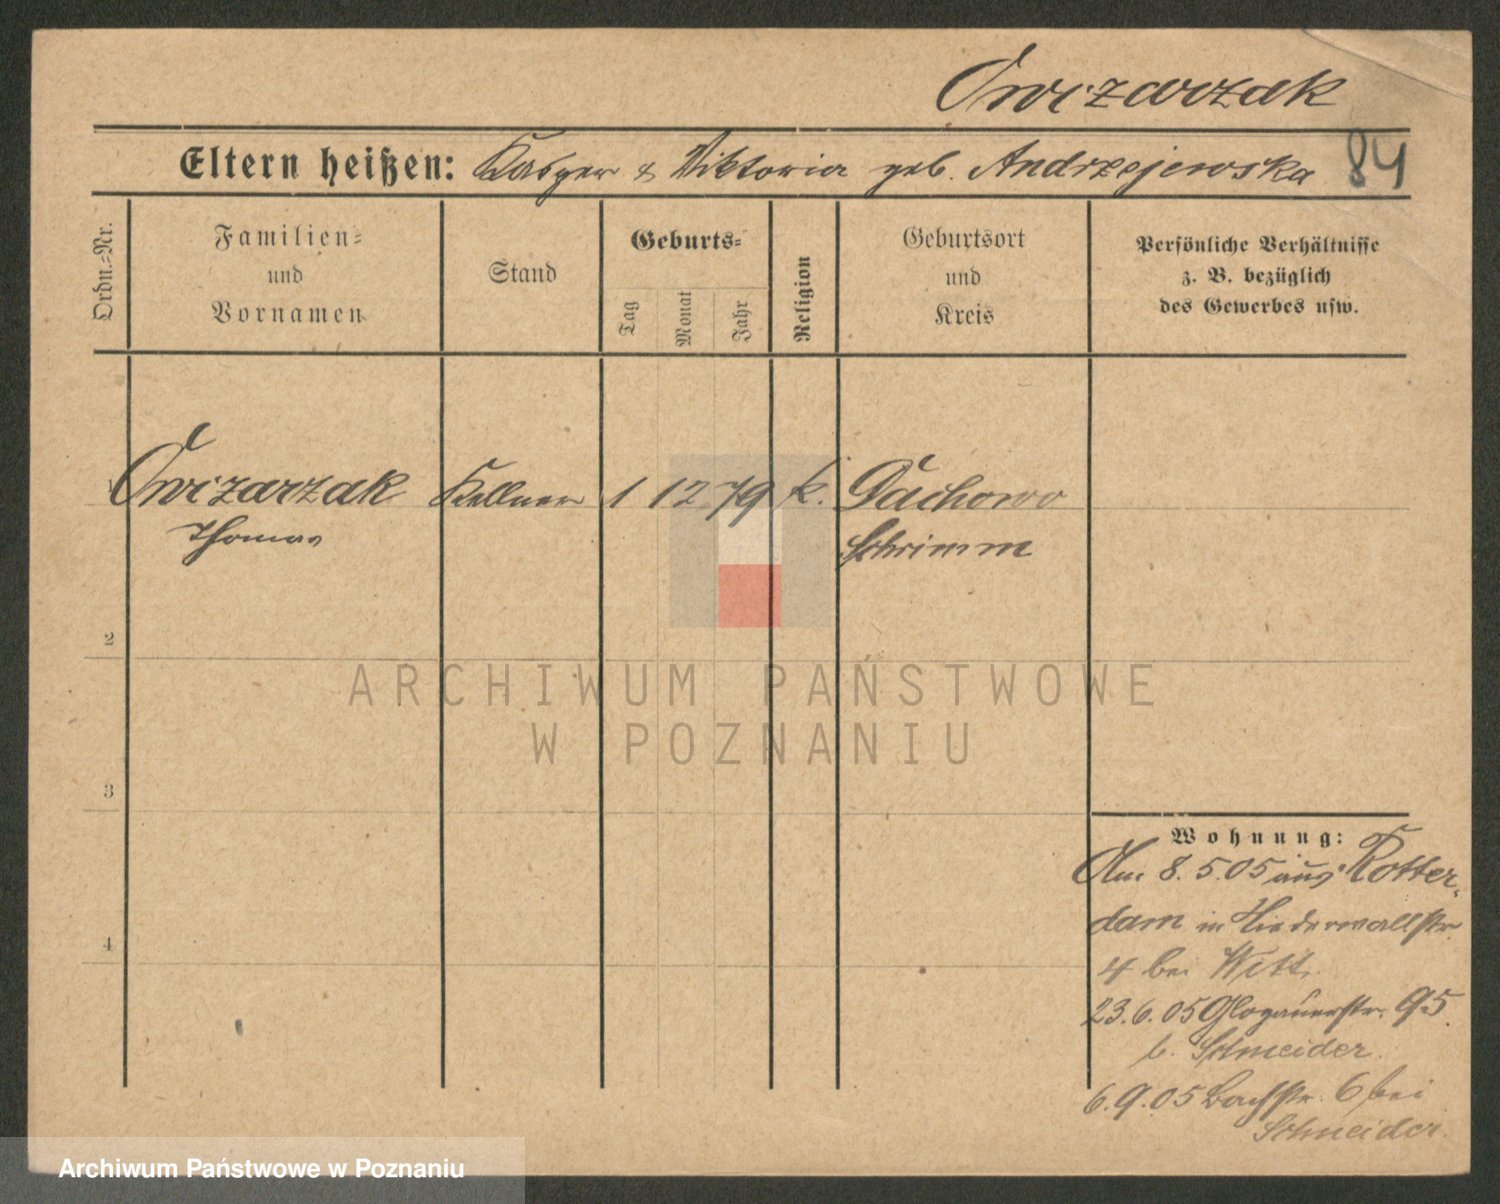 Owczarzak
Eltern heißen: Kasper & Viktoria geb. Andrzejewska 84
Ordn.-Nr.
Familien-
und
Vornamen
Stand
Geburts-
Tag
Monat
Jahr
Religion
Geburtsort
und
Kreis
Persönliche Verhältnisse
z. B. bezüglich
des Gewerbes usw.
1 Owczarzak Kellner 1 12 79 k. Dachowo
Thomas Schrimm
2
ARCHIWUM PAŃSTWOWE
W POZNANIU
3
Wohnung:
Am 8. 5. 05 aus Rotter-
dam in Niederwallstr.
4
4 bei Witt.
23. 6. 05 Glogauerstr. 95
b. Schneider.
6. 9. 05 Bachstr. 6 bei
Schneider.
Archiwum Państwowe w Poznaniu